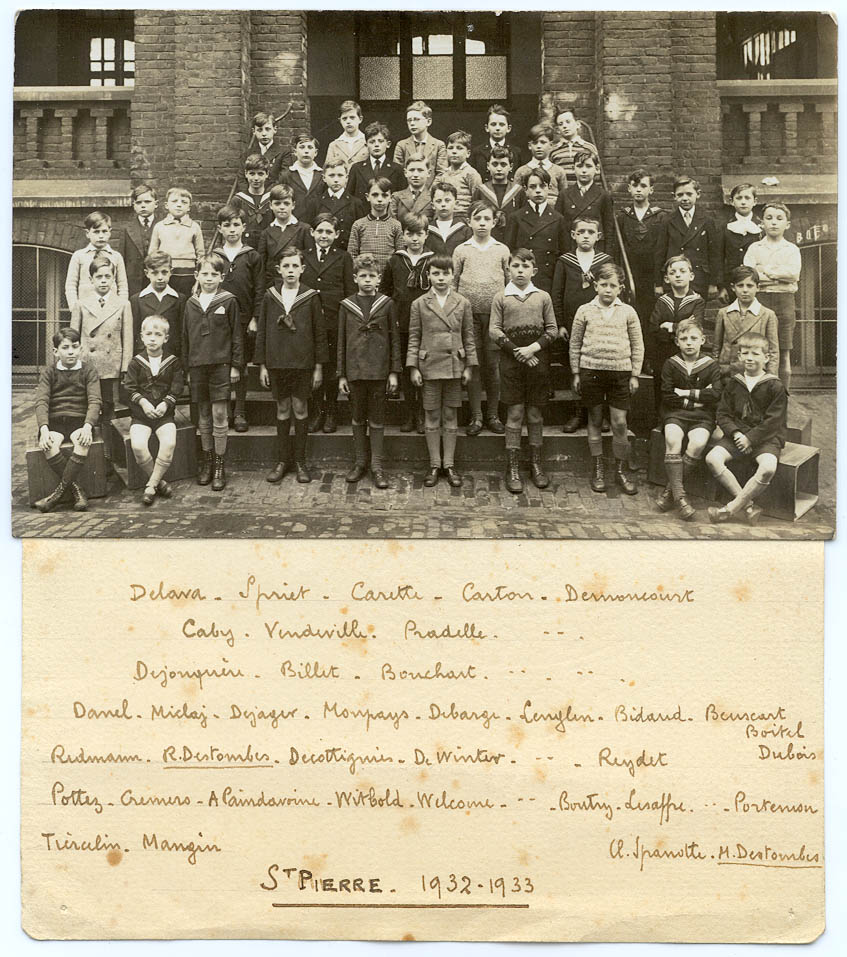 Delava - Spriet - Carette - Carton - Demoncourt
Caby - Vendeville - Pradelle. - -- .
Dejonquère - Billet - Bouchart. -- - -- .
Danel - Miclaj - Dejager - Monpays - Debarge - Lenglen - Bidaud - Beuscart
Boitel
Redmann - R. Destombes - Decottignies - De Winter - -- - Reydet
Dubois
Pottez - Cremers - A Paindavoine - Witbold - Welcome - -- - Boutry - Lesaffre - -- - Portemon
Tiercelin - Mangin
Cl. Spanotte - M. Destombes
ST PIERRE. 1932-1933